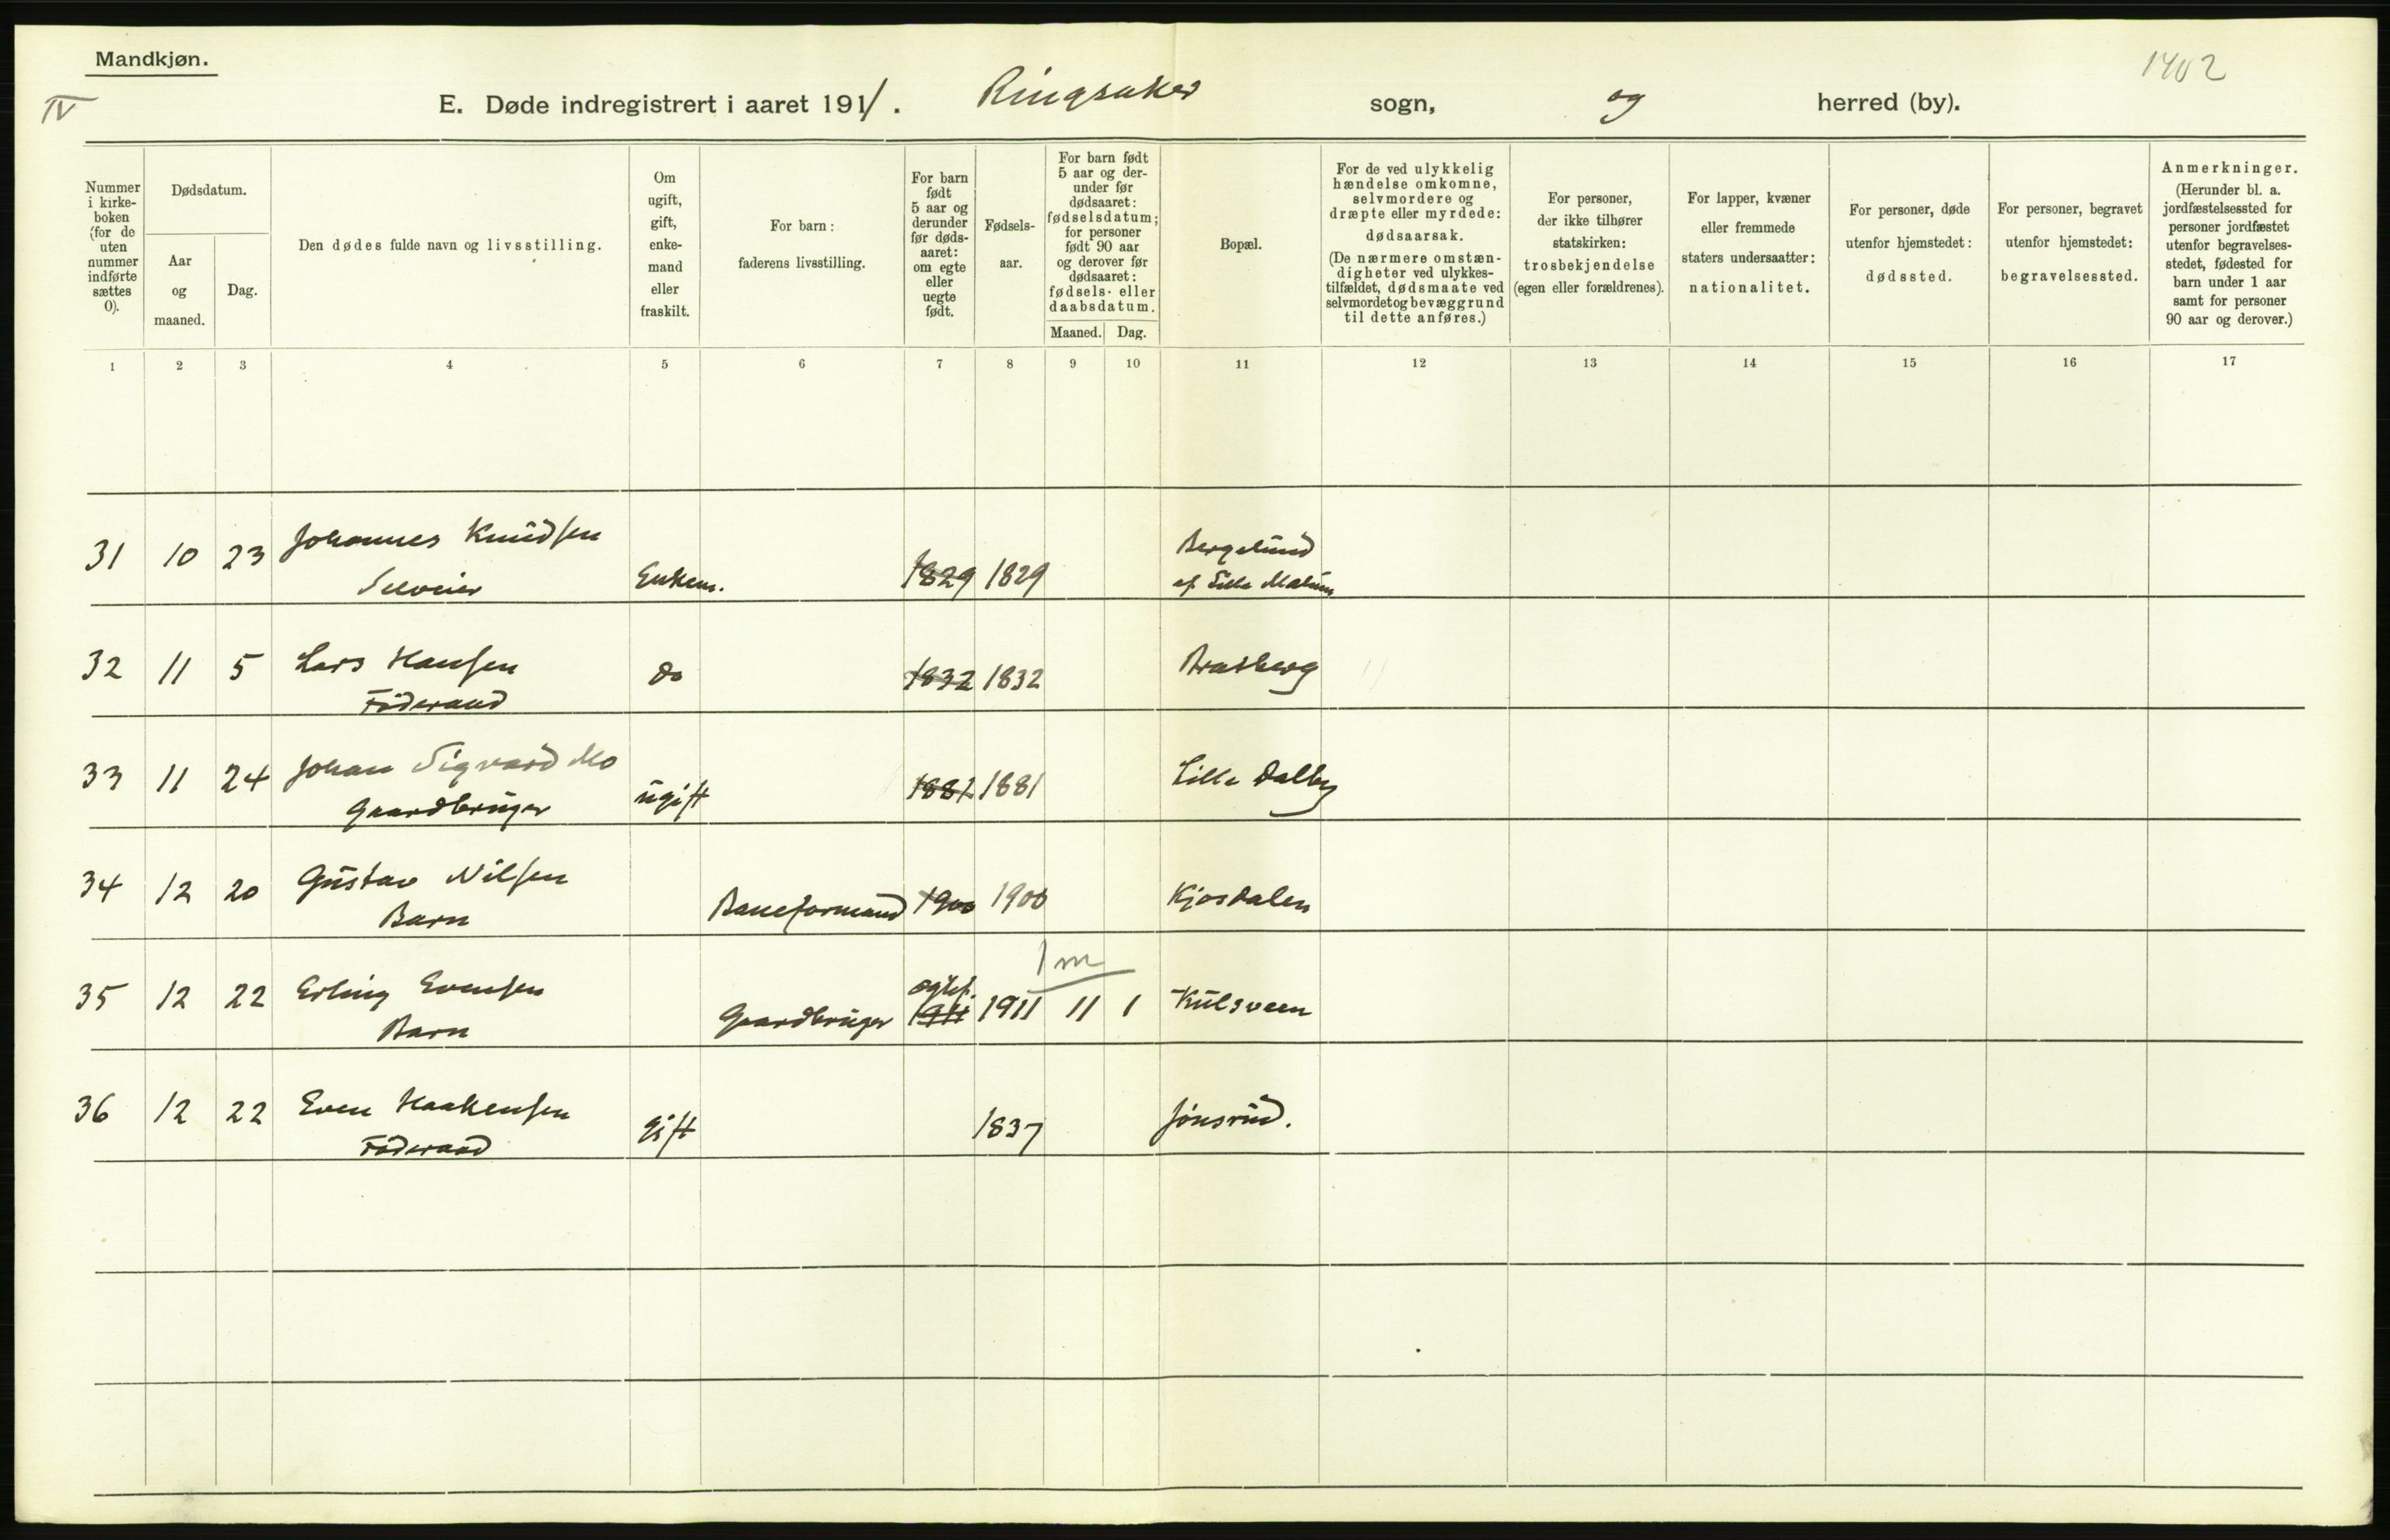 Mandkjøn.
IV
1402
E. Døde indregistrert i aaret 1911. Ringsaker sogn, og herred (by).
Nummer i kirke-boken (for de uten nummer indførte sættes 0).
Dødsdatum.
Aar og maaned.
Dag.
Den dødes fulde navn og livsstilling.
Om ugift, gift, enke-mand eller fraskilt.
For barn: faderens livsstilling.
For barn født 5 aar og derunder før døds-aaret: om egte eller uegte født.
Fødsels-aar.
For barn født 5 aar og der-under før dødsaaret: fødselsdatum; for personer født 90 aar og derover før dødsaaret: fødsels- eller daabsdatum.
Maaned. Dag.
Bopæl.
For de ved ulykkelig hændelse omkomne, selvmordere og dræpte eller myrdede: dødsaarsak. (De nærmere omstæn-digheter ved ulykkes-tilfældet, dødsmaate ved selvmord et og bevæggrund til dette anføres.)
For personer, der ikke tilhører statskirken: trosbekjendelse (egen eller forældrenes).
For lapper, kvæner eller fremmede staters undersaatter: nationalitet.
For personer, døde utenfor hjemstedet: dødssted.
For personer, begravet utenfor hjemstedet: begravelsessted.
Anmerkninger. (Herunder bl. a. jordfæstelsessted for personer jordfæstet utenfor begravelses-stedet, fødested for barn under 1 aar samt for personer 90 aar og derover.)
1 2 3 4 5 6 7 8 9 10 11 12 13 14 15 16 17
31 10 23 Johannes Knudsen
Selveier Enkem. 1829 1829 Bergelund
af Lille Malum
32 11 5 Lars Hansen
Föderaad do 1832 1832 Bratberg
33 11 24 Johan Sigvard Mo
Gaardbruger ugift 1881 1881 Lille Dalby
34 12 20 Gustav Nilsen
Barn Baneformand 1900 1900 Kjosdalen
1 m
35 12 22 Erling Evensen
Barn Gaardbruger 1911 1911 11 1 Kulsveen
36 12 22 Even Haakensen
Föderaad Gift 1837 Jönsrud.